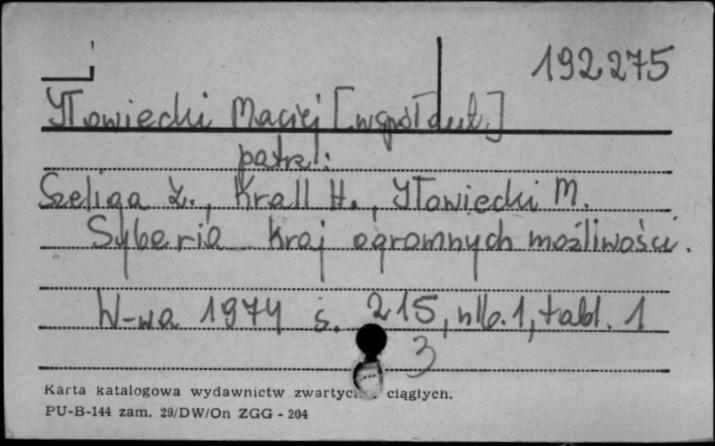 192275
Iłowiecki Maciej [współaut.]
patrz:
Szeliga Z., Krall H., Iłowiecki M.
Syberia kraj ogromnych możliwości.
W-wa 1974 s. 215, nlb. 1, tabl. 1
3
Karta katalogowa wydawnictw zwartych ciągłych.
PU-B-144 zam. 29/DW/On ZGG - 204